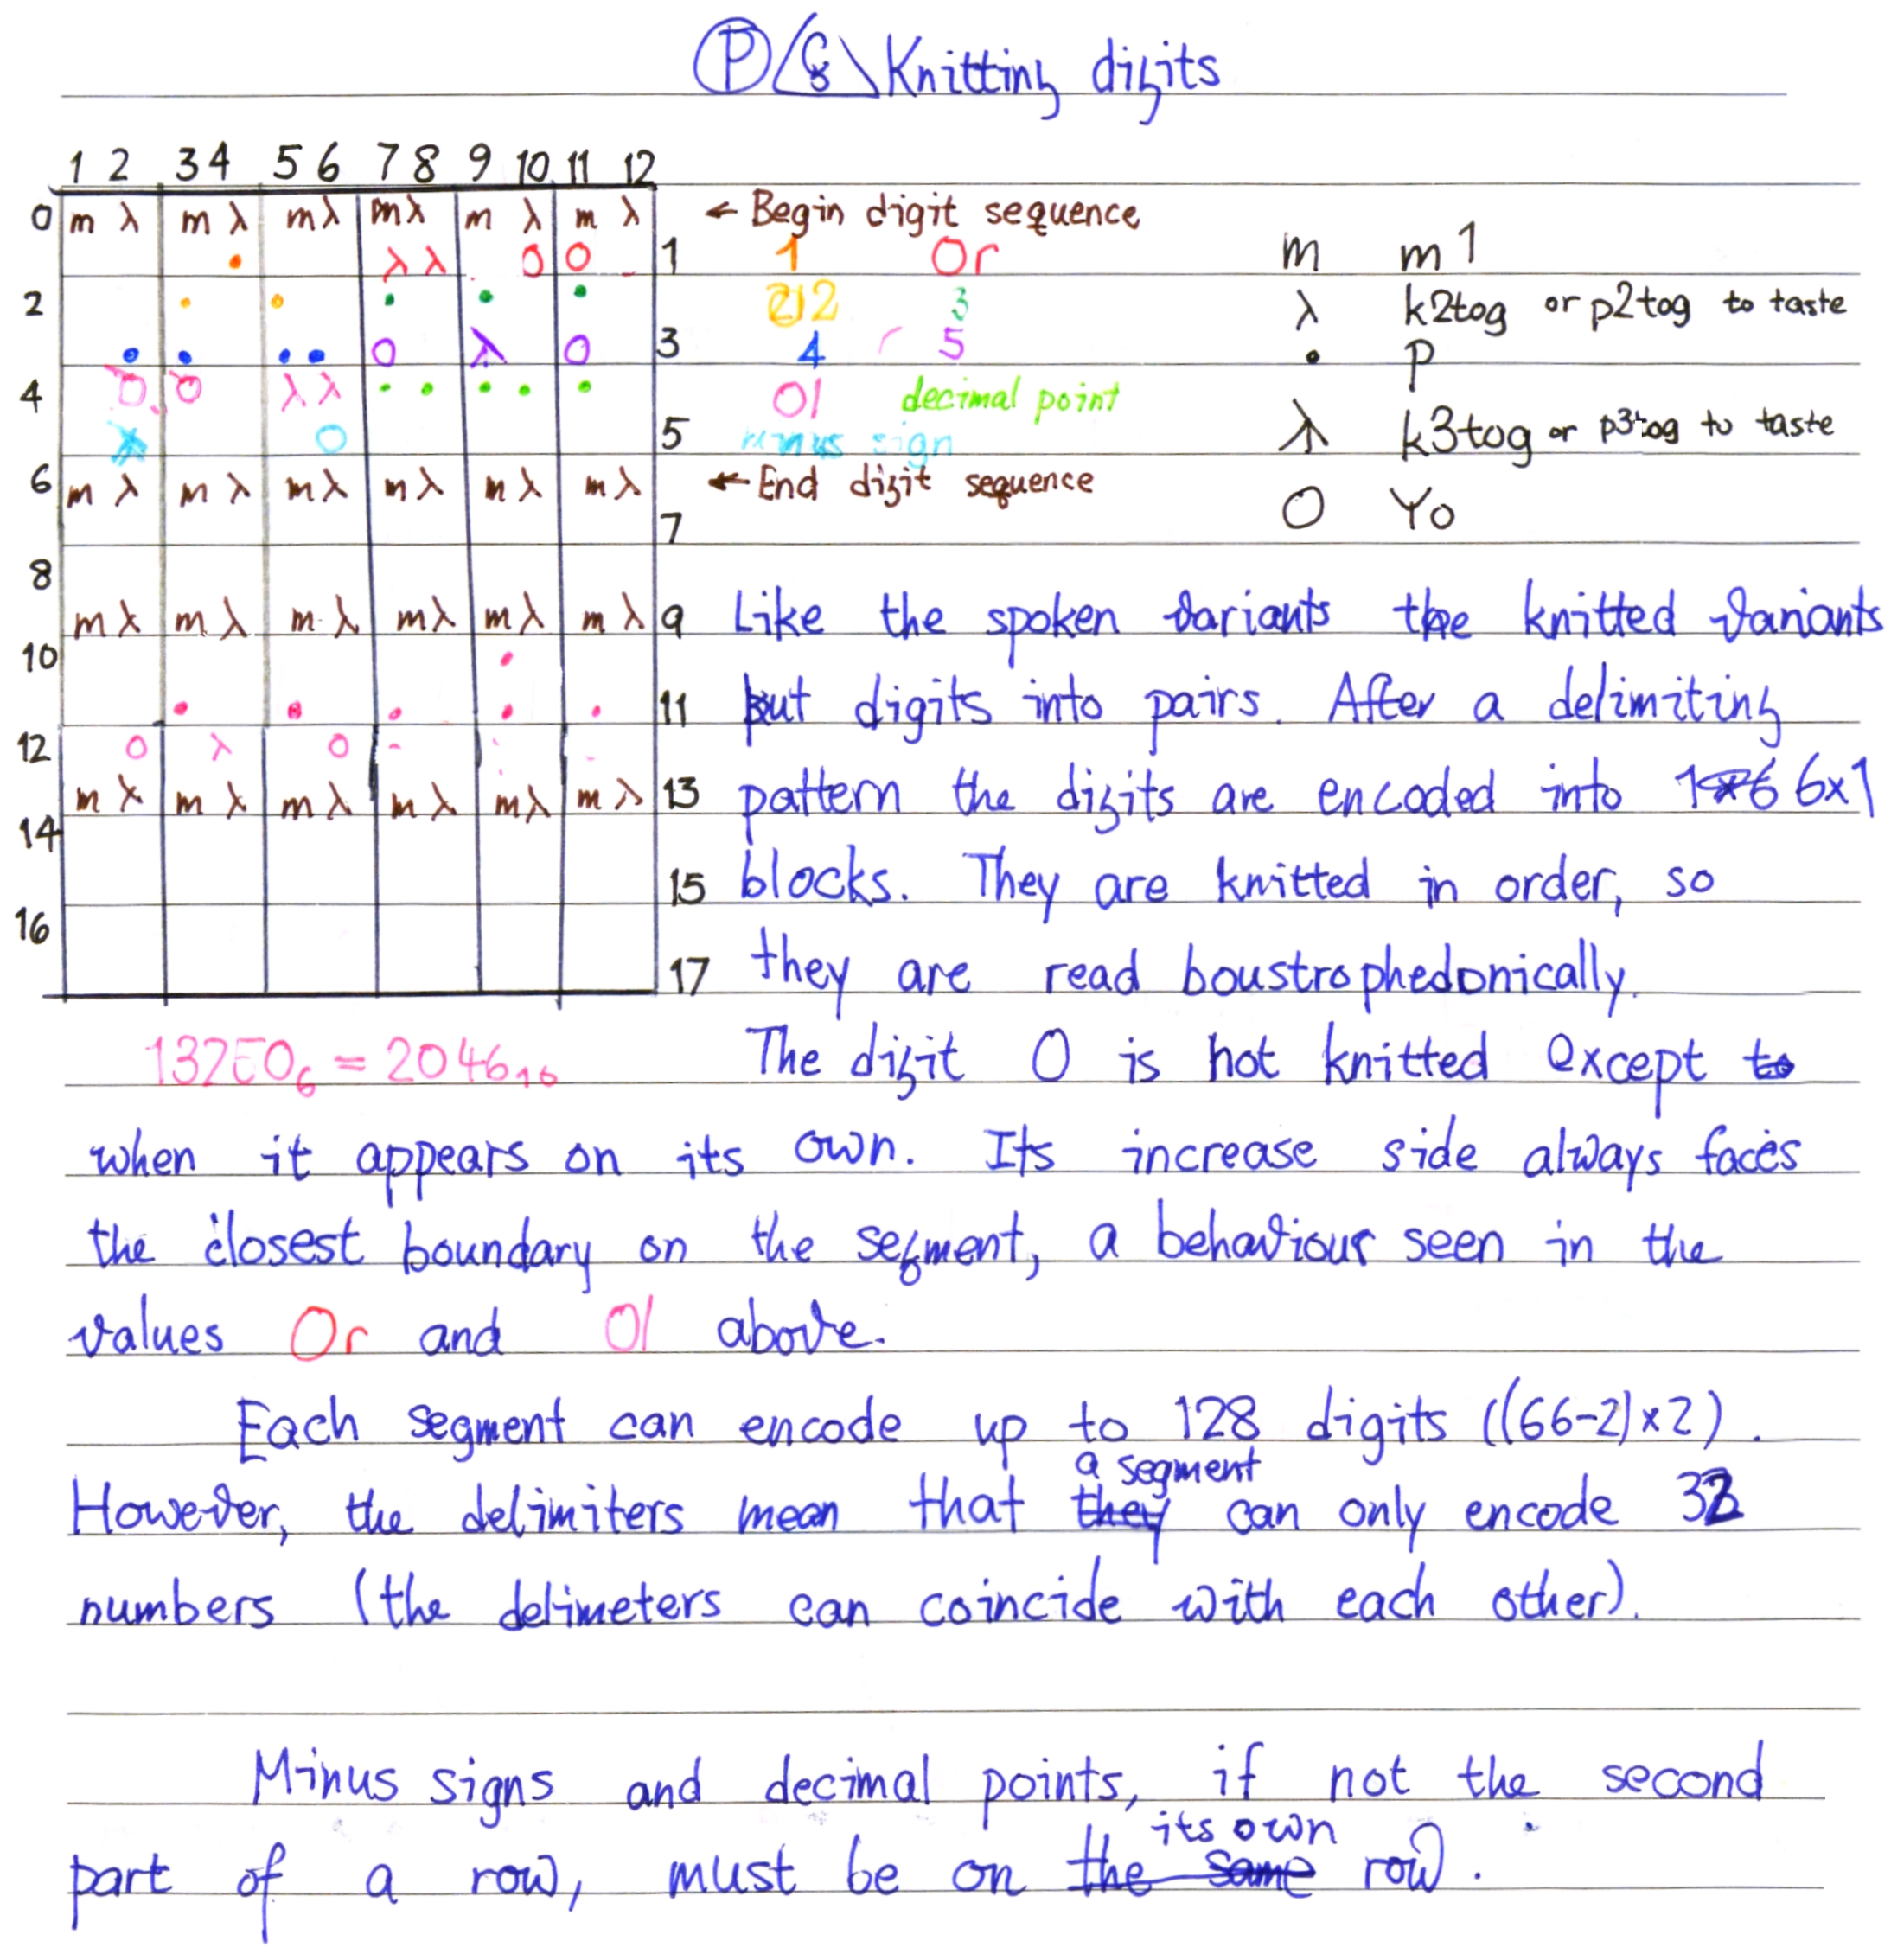 P Knitting digits
1 2 3 4 5 6 7 8 9 10 11 12
0 m λ m λ m λ m λ m λ m λ ← Begin digit sequence
• λ λ O O 1 1 Or m m 1
2 • • • • • 2 3 λ k2tog or p2tog to taste
• • • • O λ O 3 4 5 • P
4 O O λ λ • • • • • Ol decimal point
O 5 minus sign λ k3tog or p3tog to taste
6 m λ m λ m λ m λ m λ m λ ← End digit sequence
7 O Yo
8
m λ m λ m λ m λ m λ m λ 9 Like the spoken variants the knitted variants
10 •
• • • • • 11 put digits into pairs. After a delimiting
12 O λ O
m λ m λ m λ m λ m λ m λ 13 pattern the digits are encoded into 6x1
14
15 blocks. They are knitted in order, so
16
17 they are read boustrophedonically.
132E0₆ = 2046₁₀ The digit 0 is not knitted except
when it appears on its own. Its increase side always faces
the closest boundary on the segment, a behaviour seen in the
values Or and Ol above.
Each segment can encode up to 128 digits ((66-2)x2).
a segment
However, the delimiters mean that they can only encode 32
numbers (the delimeters can coincide with each other).
Minus signs and decimal points, if not the second
its own
part of a row, must be on the same row.